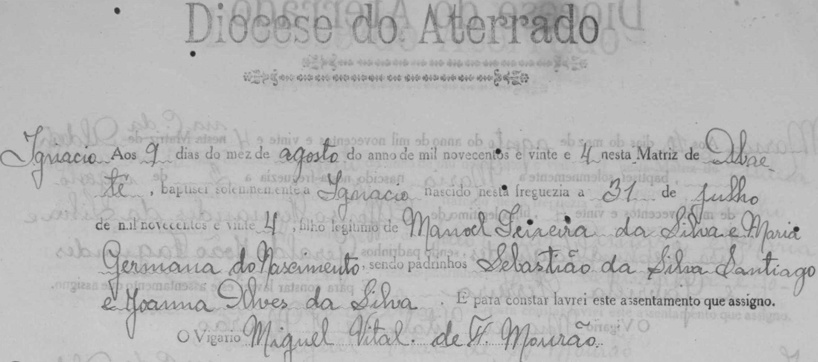 Diocese do Aterrado
Ignacio Aos 9 dias do mez de agosto do anno de mil novecentos e vinte e 4 nesta Matriz de Abae-
té, baptisei solemnemente a Ignacio nascido nesta freguezia a 31 de julho
de mil novecentos e vinte 4, filho legitimo de Manoel Teixeira da Silva e Maria
Germana do Nascimento sendo padrinhos Sebastião da Silva Santiago
e Joanna Alves da Silva. E para constar lavrei este assentamento que assigno.
O Vigario Miguel Vital. de F. Mourão